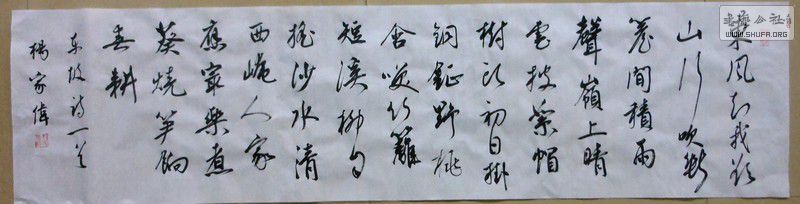 東風知我欲
山行吹斷
簷間積雨
聲嶺上晴
雲披絮帽
樹頭初日掛
銅鉦野桃
含咲竹籬
短溪柳自
搖沙水清
西崦人家
應最樂煮
葵燒筍餉
春耕
東坡詩一首
楊家偉
書法公社
WWW.SHUFA.ORG